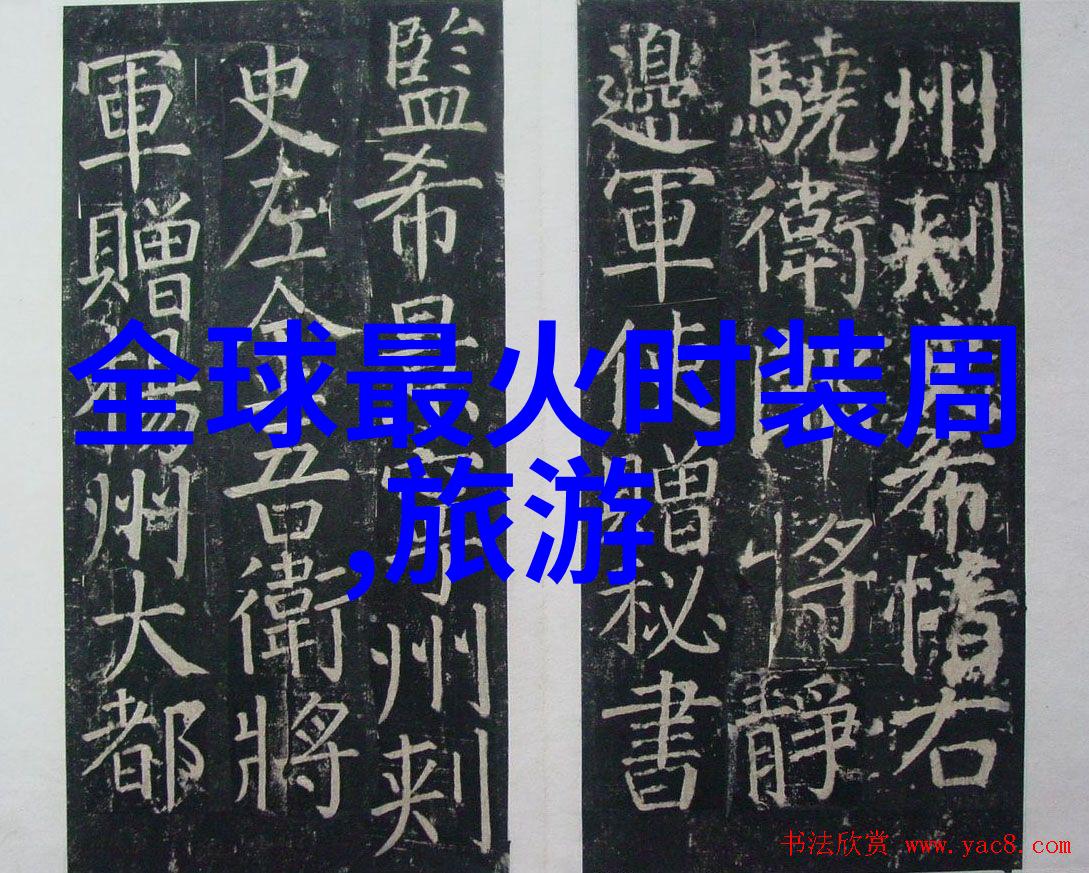 州刺希右
驍衛將靜
邊軍使贈秘書
監希景州刺
史左金吾衛將
軍贈揚州大都
全球最火时装周
,旅游
书法欣赏 www.yac8.com